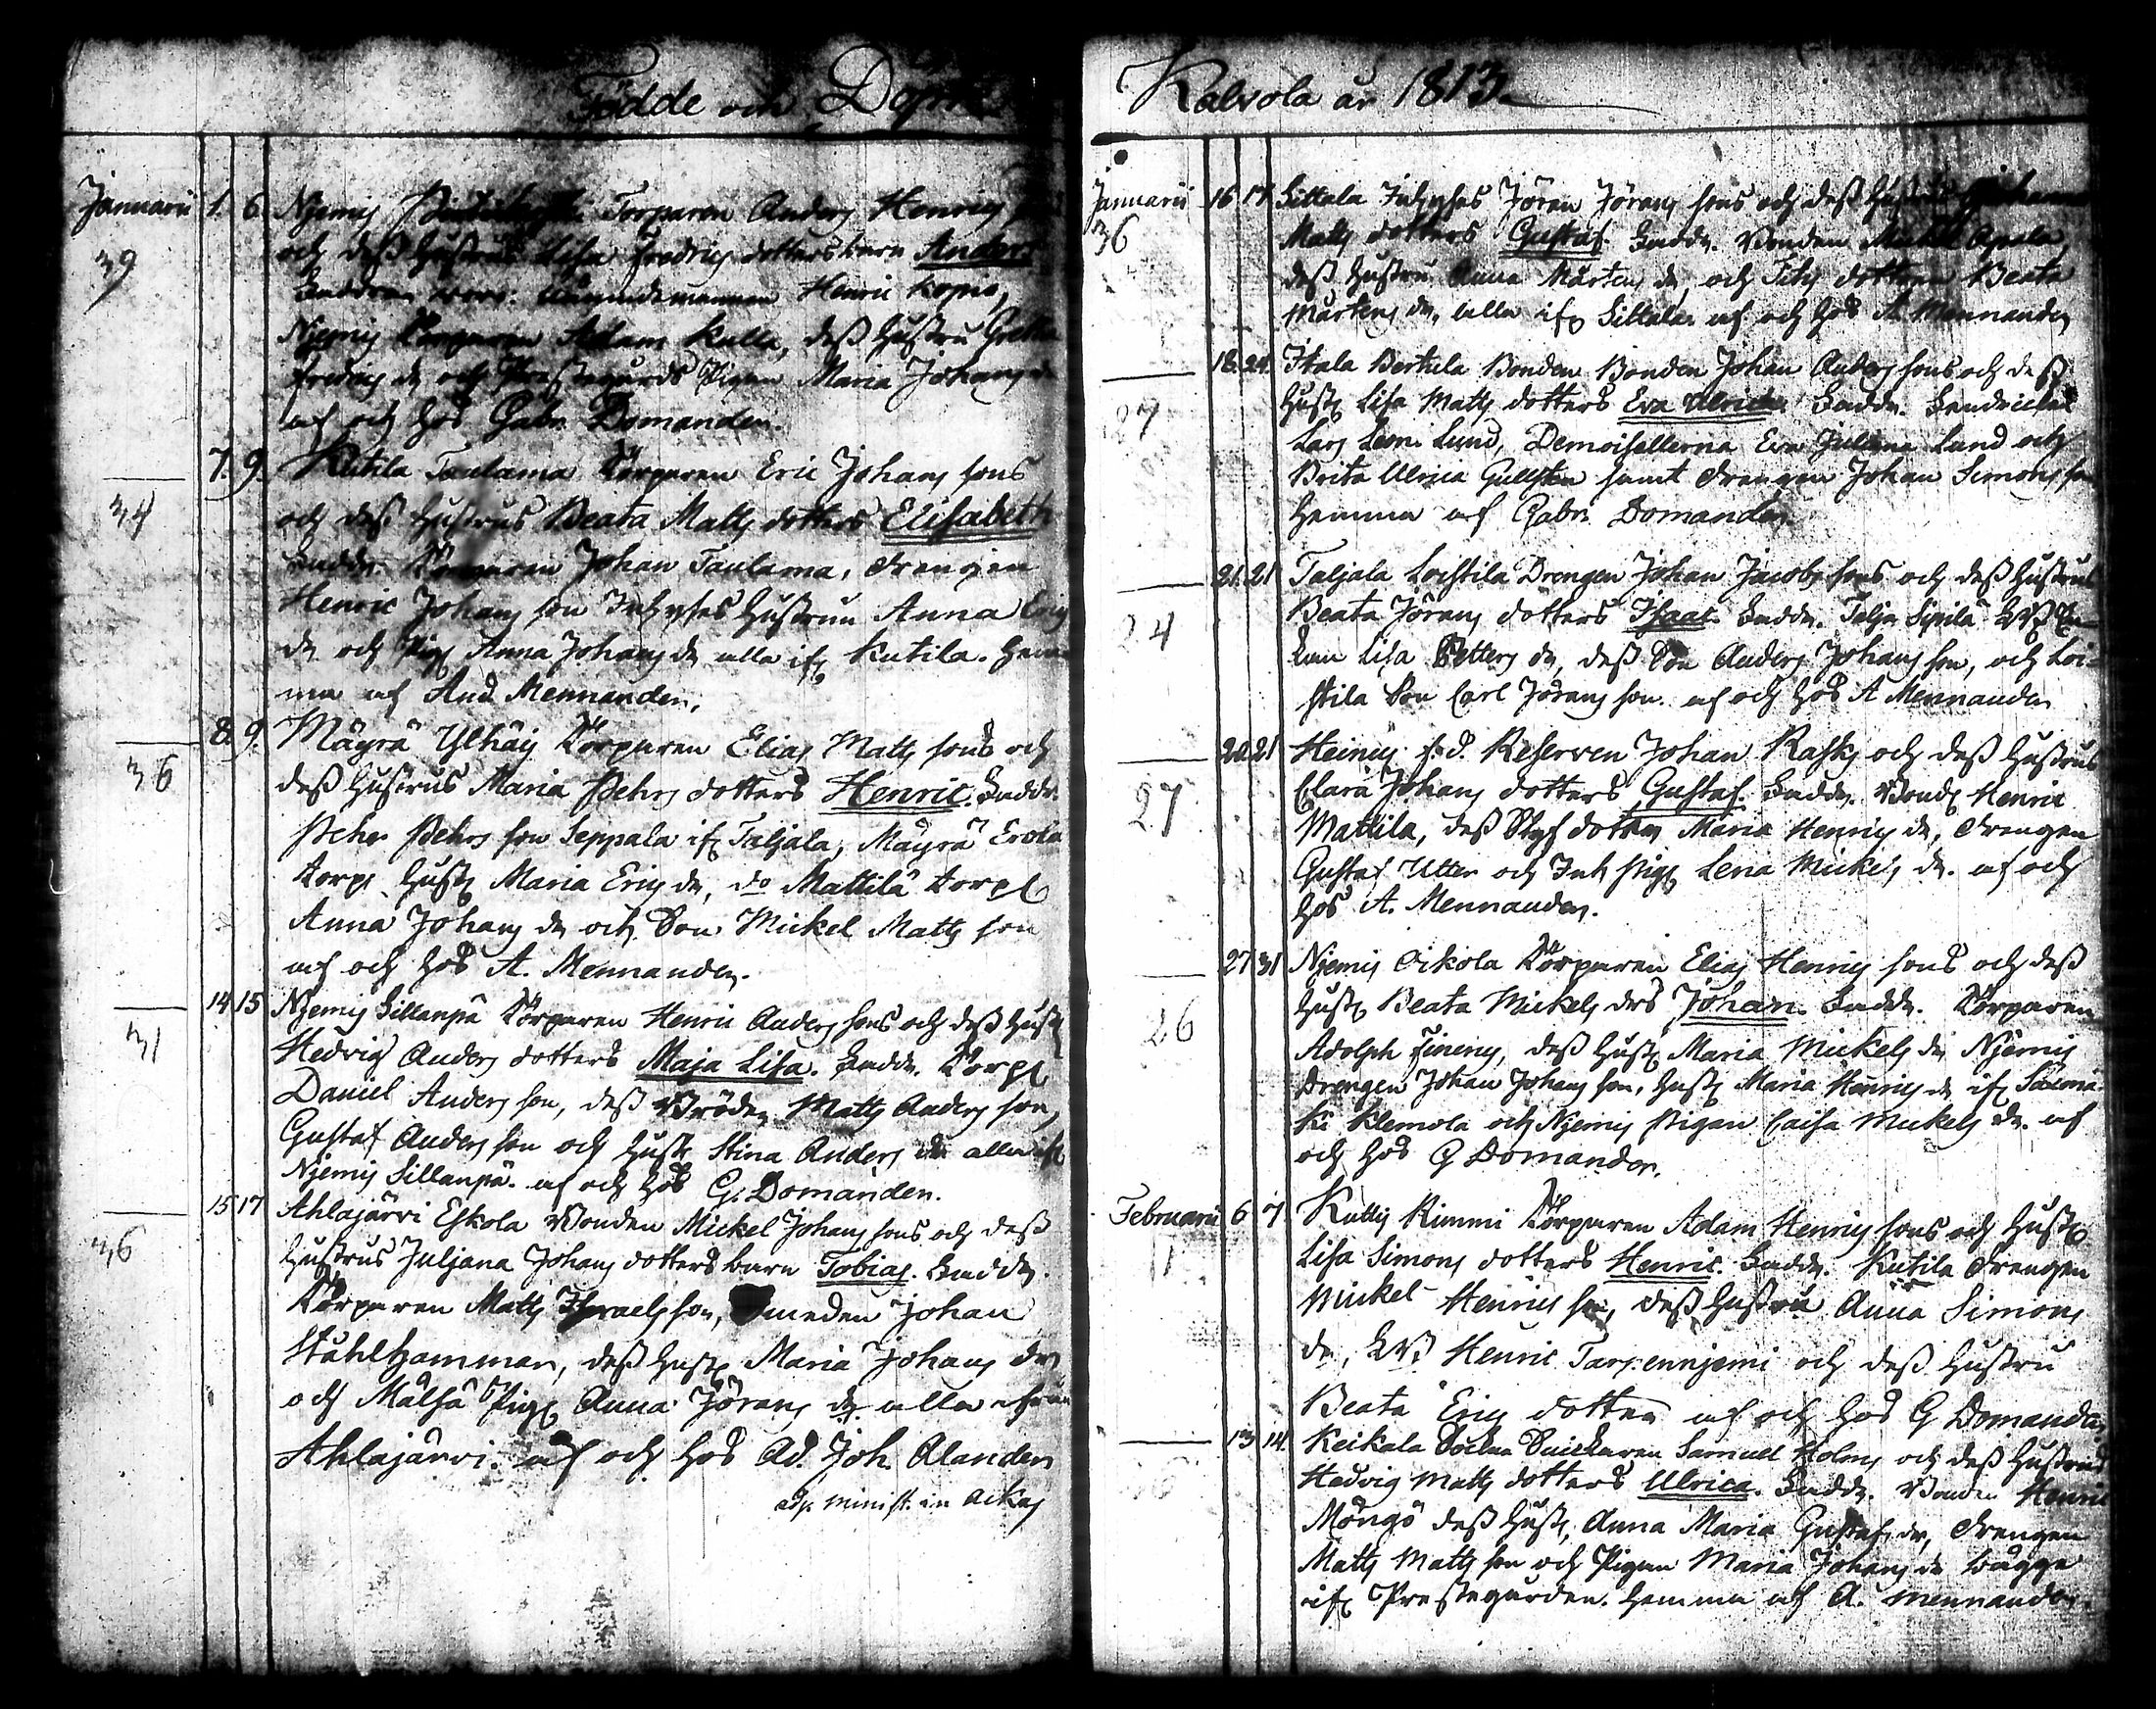 Födde och Döpte
Januarii 1. 6. Njemis Torparen Anders Henrics
39 och deß hustrus Lisa Fredrics dotters barn Anders
Faddrar woro: Nämndemannen Henric Kopio,
Njemis Torparen Adam Kulla, deß hustru Greta
Fredrics dr och Prestegårds Pigan Maria Johans dr
af och hos Gabr. Domander.
7. 9. Kutila Taulama Torparen Eric Johans sons
34 och deß hustrus Beata Matts dotters Elisabeth
Faddr. Torparen Johan Taulama, Drengen
Henric Johans son Inhyses hustrun Anna Erics
dr och Pig. Anna Johans dr alla ifr. Kutila. hem-
ma af And Mennander.
8. 9. Mäyrä Ylhäis Torparen Elias Matts sons och
36 deß hustrus Maria Pehrs dotters Henric. Faddr.
Pehr Pehrs son Seppala ifr. Taljala, Mäyrä Erola
Torp. Hustr. Maria Erics dr, do Mattila Torp.
Anna Johans dr och Son Mickel Matts son
af och hos A. Mennander.
14 15 Njemis Sillanpä Torparen Henric Anders sons och deß Hustr.
31 Hedvig Anders dotters Maja Lisa. Faddr. Torp.
Daniel Anders son, deß Bröder Matts Anders son,
Gustaf Anders son och Hustr. Stina Anders dr alla ifr.
Njemis Sillanpä. af och hos G. Domander.
15 17 Ahlajärvi Eskola Bonden Mickel Johans sons och deß
36 hustrus Juljana Johans dotters barn Tobias. Faddr.
Torparen Matts Israels son, Smeden Johan
Stahlhammar, deß hustr. Maria Johans dr
och Mälsä Pig. Anna Jörans dr alla ifrån
Ahlajärvi. af och hos Ad. Joh. Alander
adj. minist. in Ackas
Kalvola år 1813
Januarii 16 17 Sittala Inhyses Jöran Jörans sons och deß Hustrus
36 Matts dotters Gustaf. Faddr. Bonden Mickel
deß hustru Anna Mårtens dr, och dottern Beata
Mårtens dr, alla ifr. Sittala af och hos A. Mennander
18. 24. Itala Bertula Bonden Bonden Johan Anders sons och deß
27 Hustr. Lisa Matts dotters Eva Ulrica Faddr.
Lars Lund, Demoisellerna Eva Juliana Lund och
Brita Ulrica Gullsten samt Drengen Johan Simons son
hemma af Gabr. Domander.
21. 21 Taljala Loistila Drengen Johan Jacobs sons och deß hustrus
24 Beata Jörans dotters Isaac. Faddr. Talja Sipilä
Lisa Petters dr, deß Son Anders Johans son, och Loi-
stila Son Carl Jörans son. af och hos A Mennander
20. 21 Heinus f.d. Reserven Johan Rask, och deß hustrus
27 Clara Johans dotters Gustaf. Faddr. Bond. Henric
Mattila, deß Styf dotter Maria Henrics dr, Drengen
Gustaf Utter och Inh. Pig. Lena Mickels dr. af och
hos A. Mennander.
27 31 Njemis Oikola Torparen Elias Henrics sons och deß
26 Hustr. Beata Mickels drs Johan. Faddr. Torparen
Adolph deß Hustr. Maria Mickels dr Njemis
Drengen Johan Johans son, Hustr. Maria Henrics dr ifr. Saémä-
ki Klemola och Njemis Pigan Caisa Mickels dr. af
och hos G Domander.
Februarii 6 7. Kuttis Rimmi Torparen Adam Henrics sons och Hustr.
Lisa Simons dotters Henric. Faddr. Kutila Drengen
Mickel Henrics son, deß hustru Anna Simons
dr, Henric Tarpennjemi och deß hustru
Beata Erics dotter af och hos G Domander
13 14. Keikala Sockne Snickaren Samuel Holms och deß hustrus
Hedvig Matts dotters Ulrica. Faddr. Bonden Henric
Möngö deß Hustr. Anna Maria Gustafs dr, Drengen
Matts Matts son och Pigan Maria Johans dr bägge
ifr. Prestegården. hemma af A. Mennander.